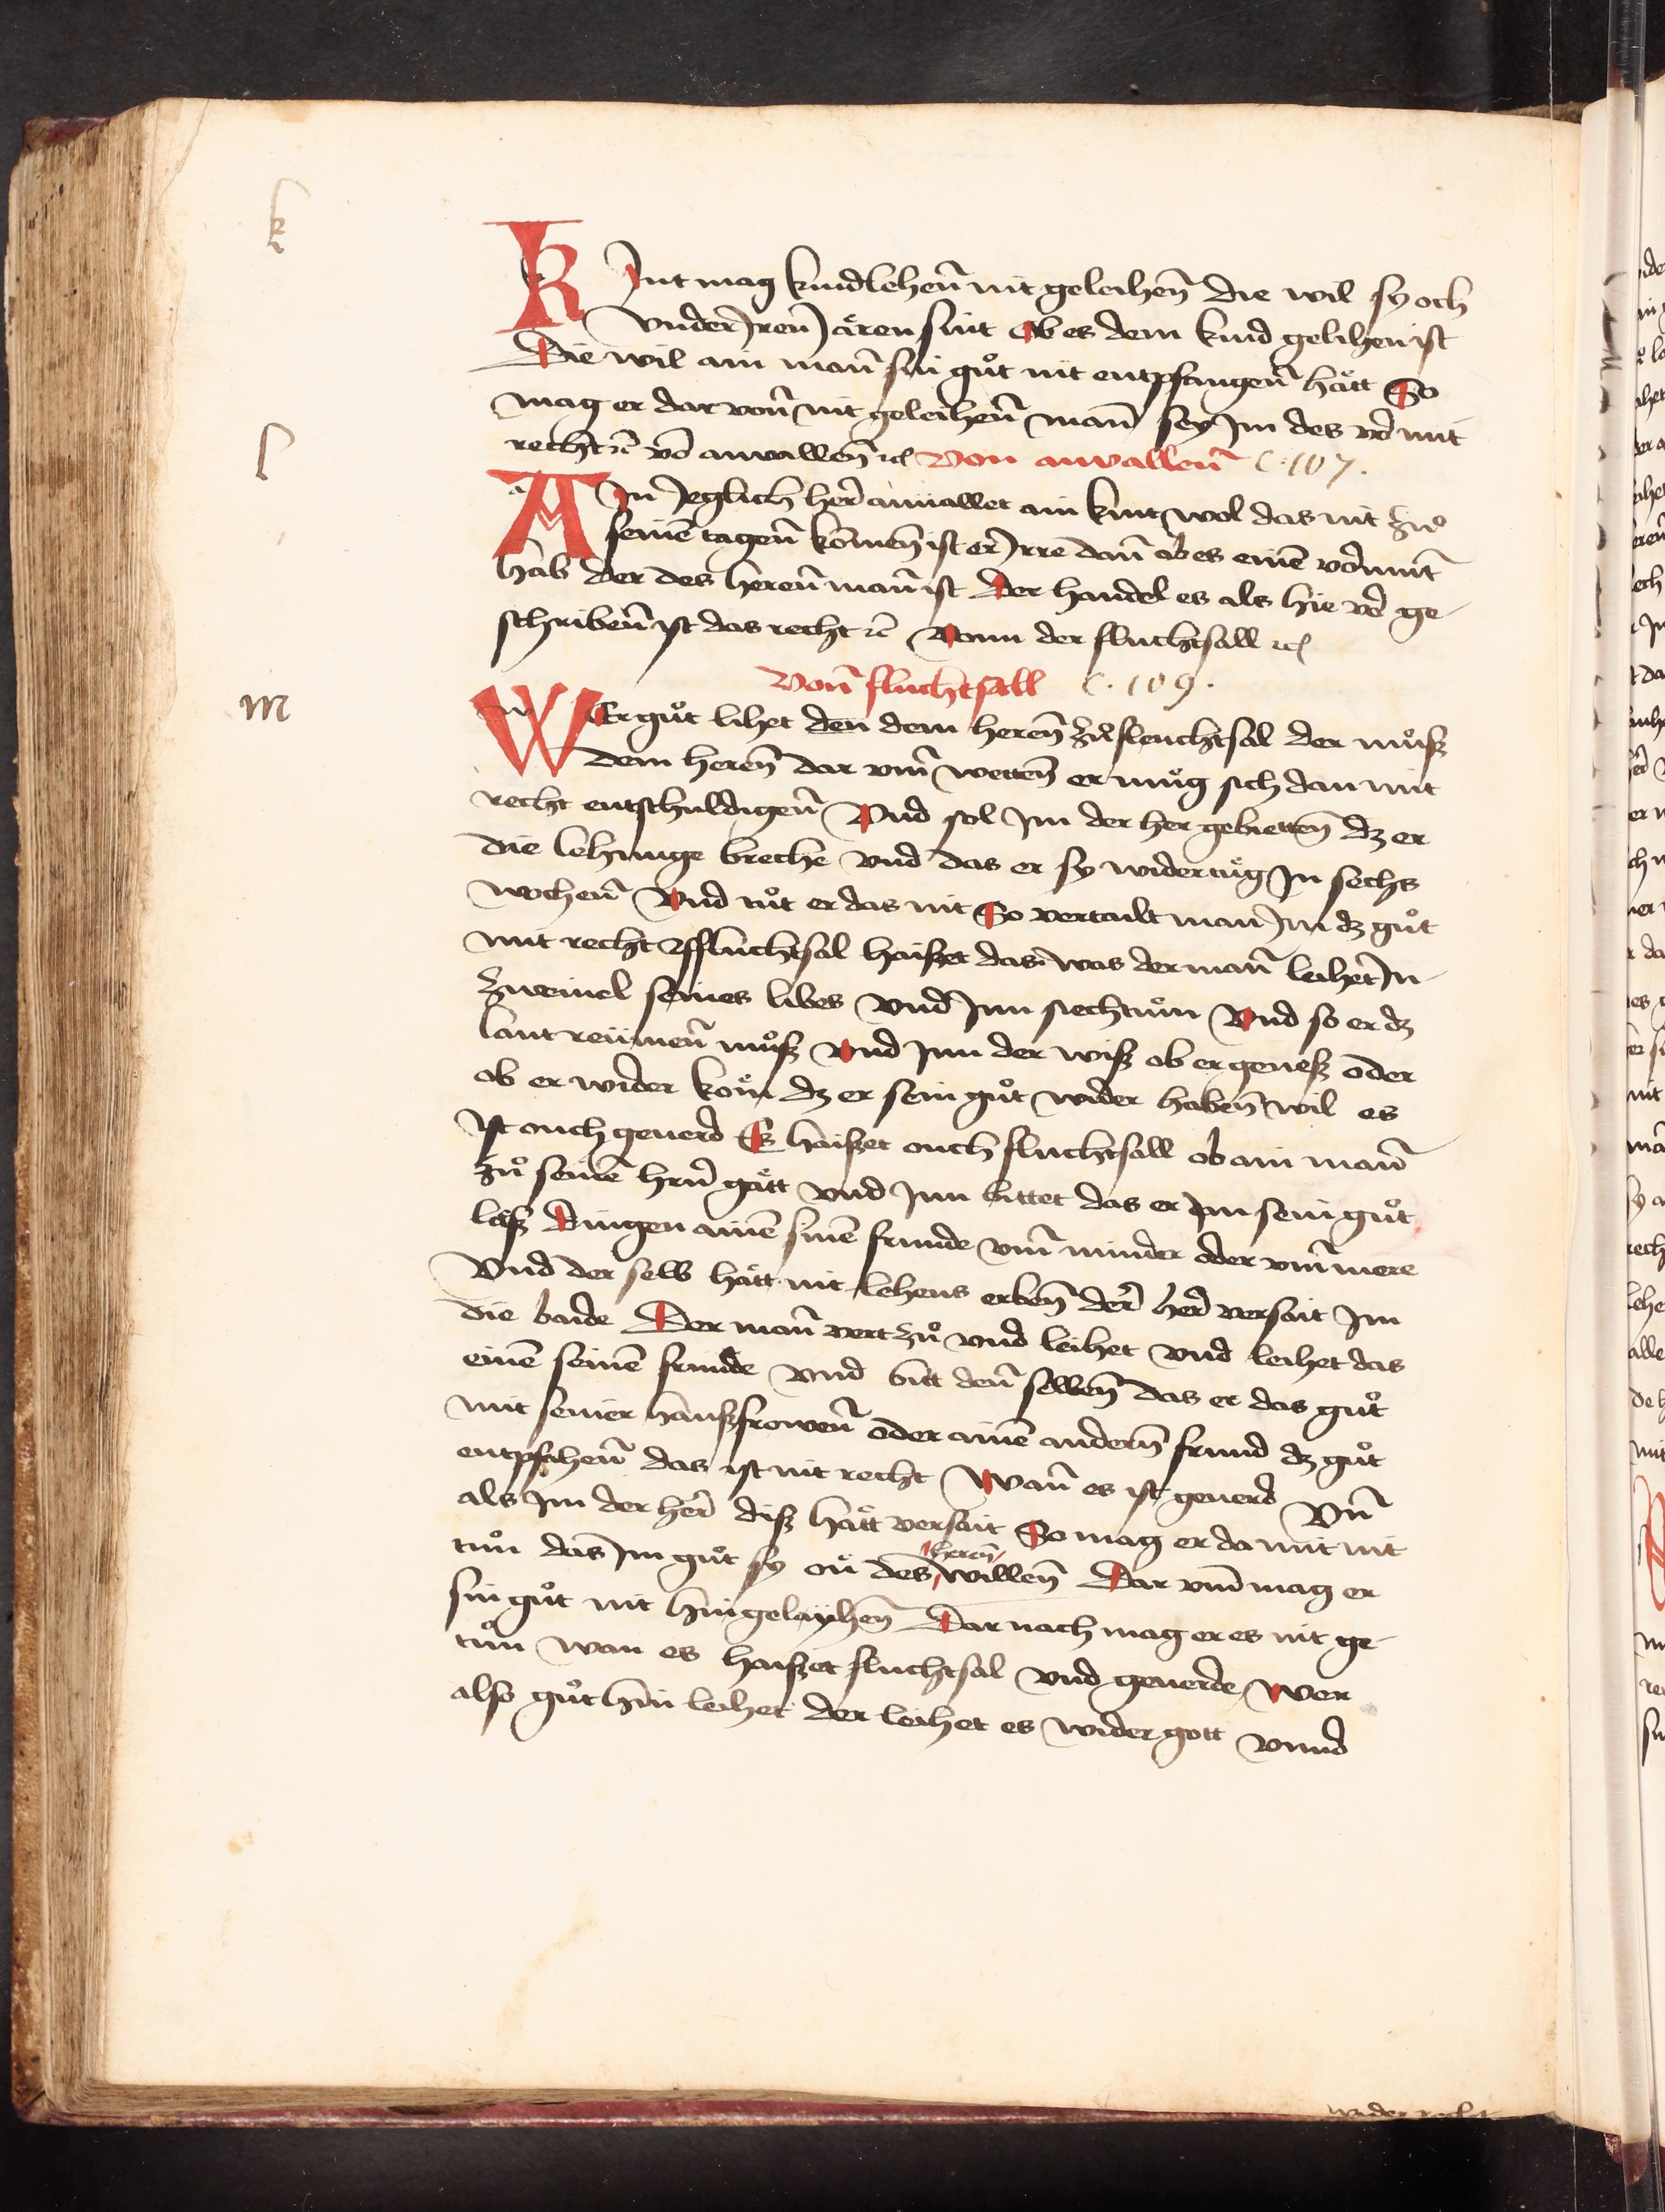 k
KInt mag kindlehen̄ nit geleihen̄ die wil sy och
vnder Iren Iären sint Ob es dem kind gelihen ist
Die wil ain man̄ sin gůt nit entpfangen̄ hätt So
mag er dar von̄ nit geleihen̄ man̄ sey Im des vō mit
recht ⁊c̄ vō anvallen̄ ⁊c̄ Von anvallen̄ C. 107.
l
AIn Jeglich her̄ anuallet ain kint wol das nit zuͦ
seinē tagen̄ komen̄ ist er̄ Irre dan̄ ob es einē vormūt
hab der des heren̄ man̄ ist Der handel es als hie vō ge-
schriben̄ ist das recht ⁊c̄ Vonn der fluchtsall ⁊c̄
Von̄ fluchtsall C. 109.
m
WEr gůt lihet den dem heren̄ zů fleuchtsal der můsz
dem heren̄ dar vm̄ wetten̄ er mug sich dan mit
recht entschuldigen̄ Vnd sol Im der her gebietten̄ dz er
die lehunge breche vnd das er sy widertůg In sechs
wochen̄ Vnd tůt er das nit So vertailt man Im dz gůt
mit recht fluchtsal haisset das was der man̄ leihet In
zweiuel seines libes Vnd Inn siechtům Vnd so er dz
lant reümen̄ můsz Vnd Inn der wisz ob er genesz oder
ob er wider kom dz er sein gůt wider haben̄ wil es
Ist ouch geuerd Es haisset ouch fluchtsall ob ain man̄
zů seinē hrn̄ gätt vnd Inn bittet das er Im sein gůt
läsz Dingen ainē sinē frunde vm̄ minder oder vm̄ mere
Vnd der selb hätt nit lehens erben̄ der her̄ versait Im
die baide Der man̄ vert zů vnd leihet vnd leihet das
einē seinē frunde vnd bitt den̄ selben̄ das er das gůt
mit seiner hauszfrowen̄ oder ainē andern̄ frund dz gůt
entpfahen̄ das ist nit recht Wan̄ es ist geuerd Vn̄
als Im der her̄ disz hätt versait So mag er da mit nit
tůn das Im gůt sy on des heren̄ willen̄ Dar vm̄ mag er
sin gůt nit hin gelaÿhen̄ Dar nach mag er es nit ge-
tůn wan es haisset fluchtsal vnd geuerde Wer
also gůt hin leihet der leihet es wider gott vnnd
wider recht